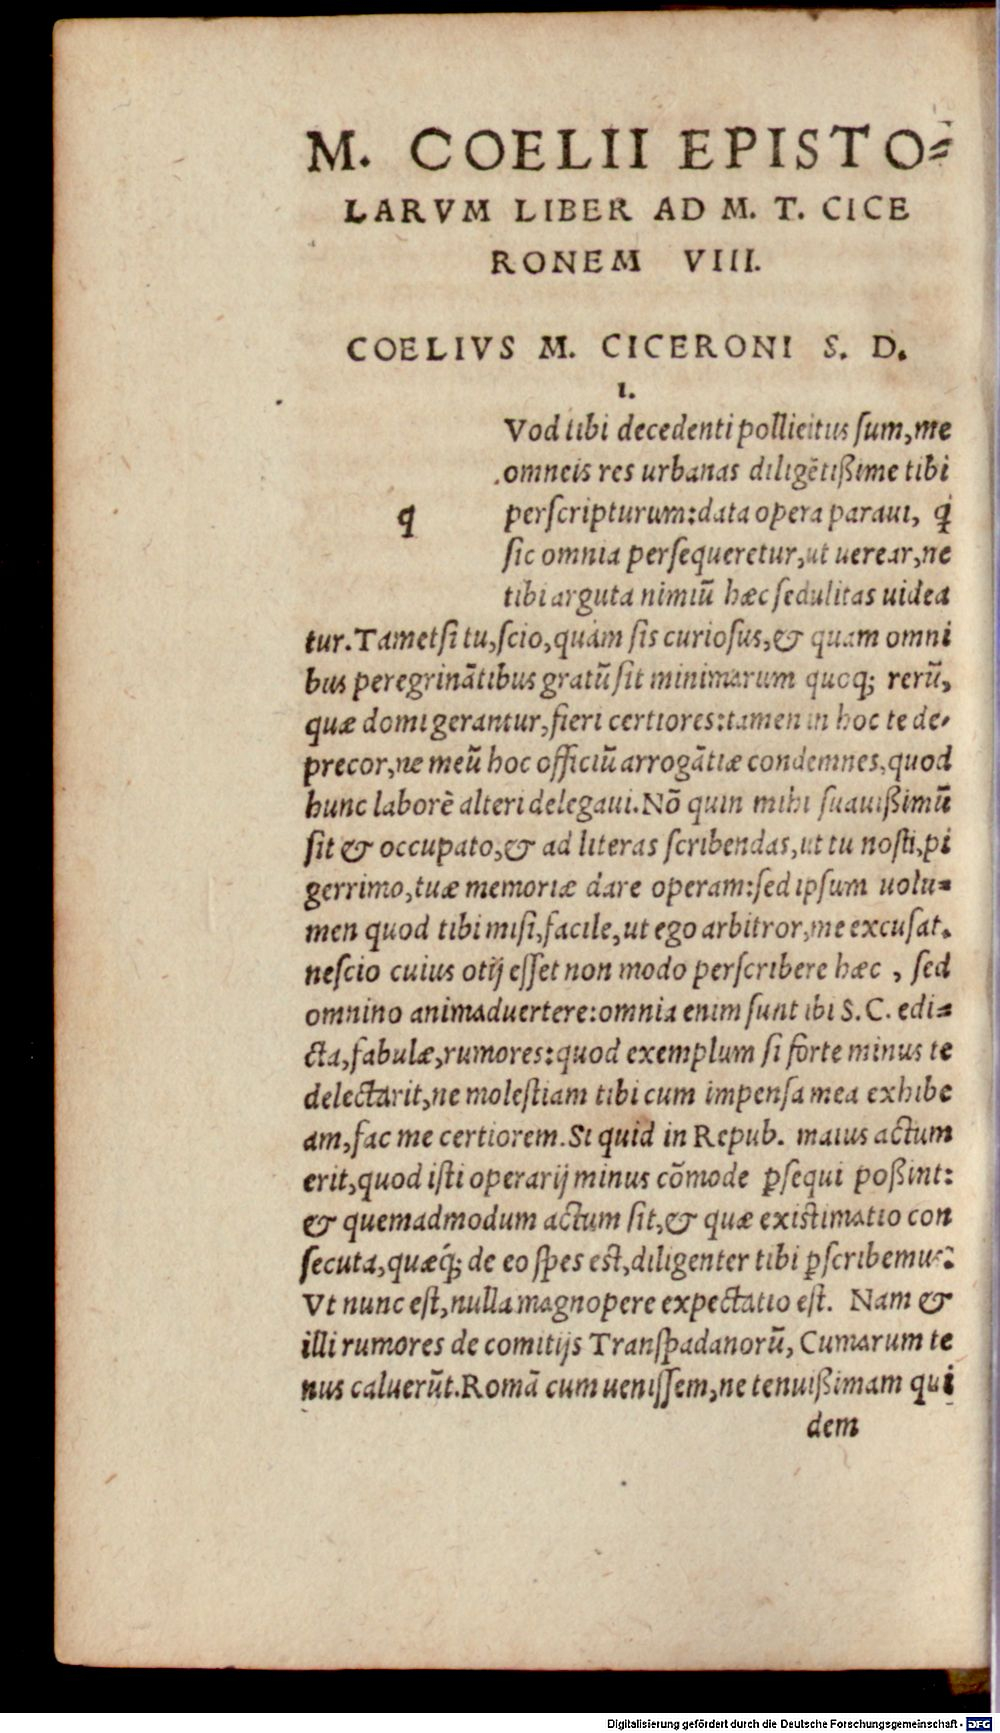 M. COELII EPISTO⸗
LARVM LIBER AD M. T. CICE
RONEM VIII.
COELIVS M. CICERONI S. D.
I.
q
Vod tibi decedenti pollicitus ſum, me
omneis res urbanas diligẽtißime tibi
perſcripturum: data opera paraui, q̃
ſic omnia perſequeretur, ut uerear, ne
tibi arguta nimiũ hæc ſedulitas uidea
tur. Tametſi tu, ſcio, quàm ſis curioſus, & quam omni
bus peregrinãtibus gratũ ſit minimarum quoq; rerũ,
quæ domi gerantur, fieri certiores: tamen in hoc te de-
precor, ne meũ hoc officiũ arrogãtiæ condemnes, quod
hunc laborẽ alteri delegaui. Nõ quin mihi ſuauißimũ
ſit & occupato, & ad literas ſcribendas, ut tu noſti, pi
gerrimo, tuæ memoriæ dare operam: ſed ipſum uolu⸗
men quod tibi miſi, facile, ut ego arbitror, me excuſat.
neſcio cuius otij eſſet non modo perſcribere hæc , ſed
omnino animaduertere: omnia enim ſunt ibi S. C. edi⸗
cta, fabulæ, rumores: quod exemplum ſi forte minus te
delectarit, ne moleſtiam tibi cum impenſa mea exhibe
am, fac me certiorem. Si quid in Repub. maius actum
erit, quod iſti operarij minus cõmode ꝑſequi poßint:
& quemadmodum actum ſit, & quæ existimatio con
ſecuta, quæq́; de eo ſpes est, diligenter tibi ꝑſcribemus:
Vt nunc eſt, nulla magnopere expectatio eſt. Nam &
illi rumores de comitijs Tranſpadanorũ, Cumarum te
nus caluerũt. Romã cum ueniſſem, ne tenuißimam qui
dem
Digitalisierung gefördert durch die Deutsche Forschungsgemeinschaft - DFG